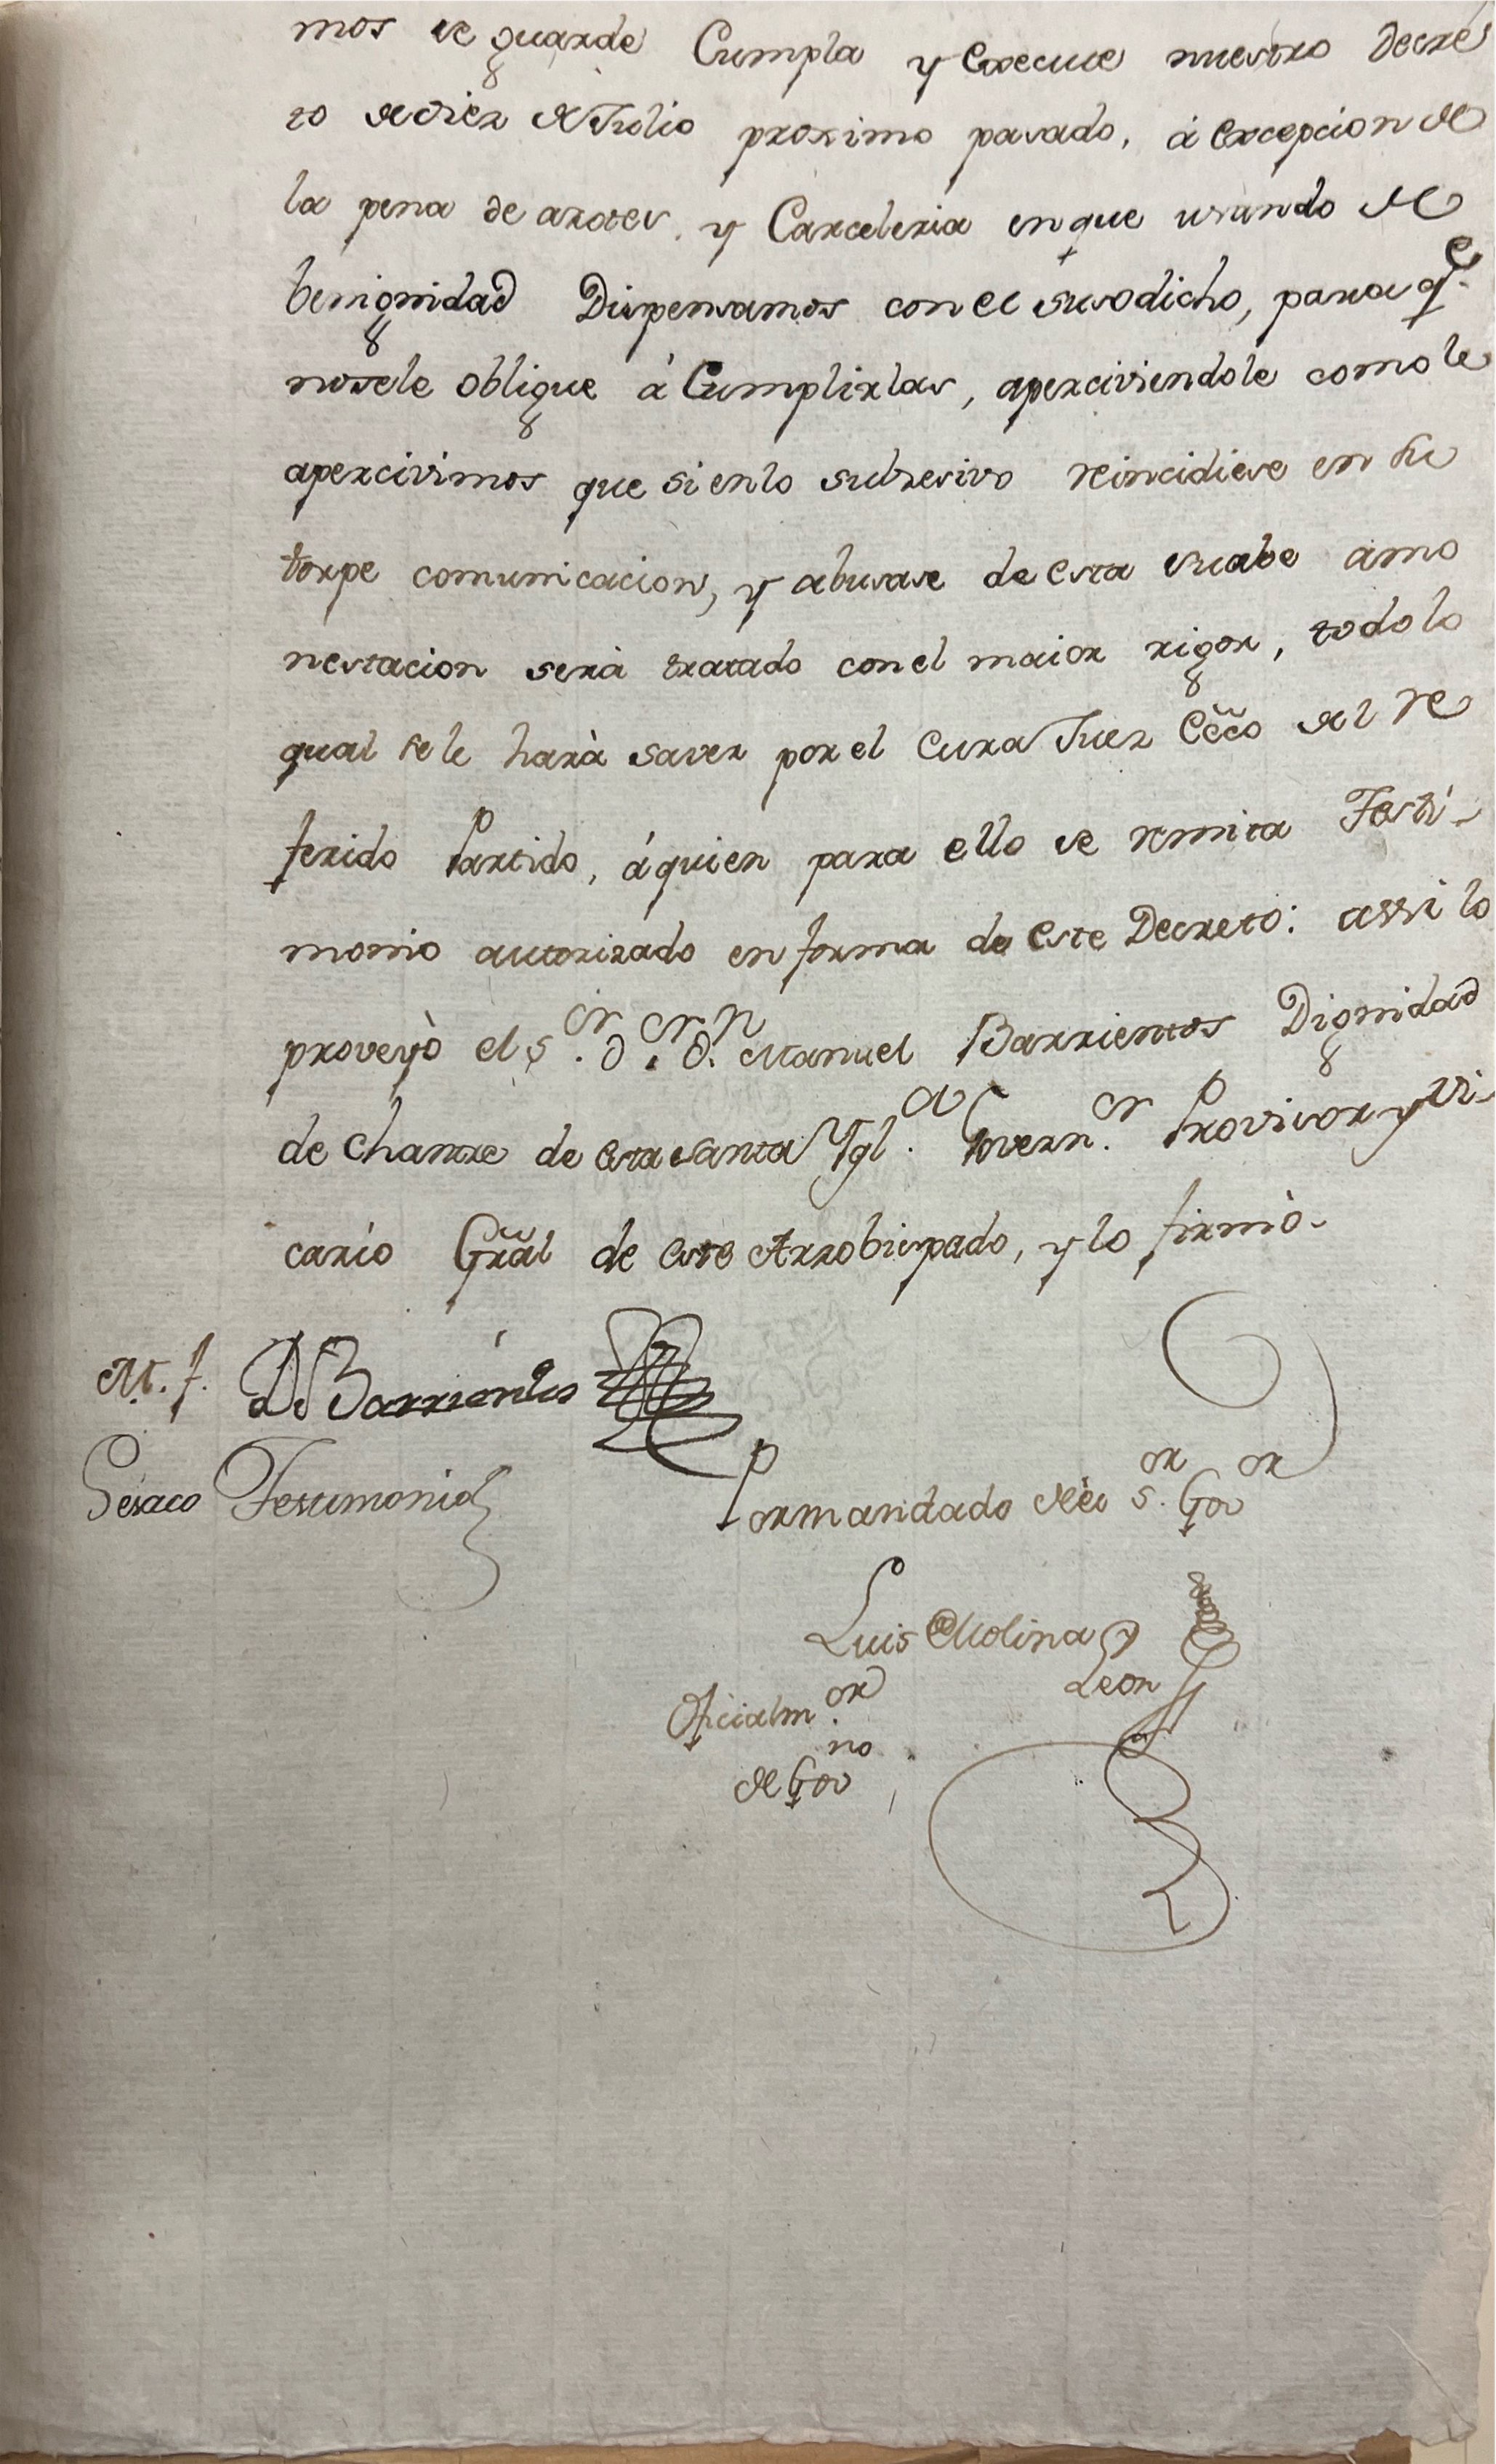 mos se guarde Cumpla y execute nuestro Decre
to de diez de Julio proximo pasado, á excepcion de
la pena de azotes, y Carceleria en que usando de
benignidad Dispensamos con el susodicho, para q.e
no se le obligue á Cumplirlas, aperciviendole como le
apercivimos que si en lo subcesivo reincidiese en su
torpe comunicacion, y abusase de esta suabe amo
nestacion será tratado con el maior rigor, todo lo
qual se le hará saver por el Cura Juez Ecc̃o del re
ferido Partido, á quien para ello se remita Testi-
monio autorizado en forma de este Decreto: assi lo
proveyò el s.or D.or D.n Manuel Barrientos Dignidad
de Chantre de esta santa Ygl.a Govern.or Provisor y Vi-
cario Gr̃al de este Arzobispado, y lo firmò-
M. f. D Barrientos
Por mandado del S.or Gov.or
Se saco Testimonio
Luis Molina y
Leon
Oficial m.or
de Gov.no